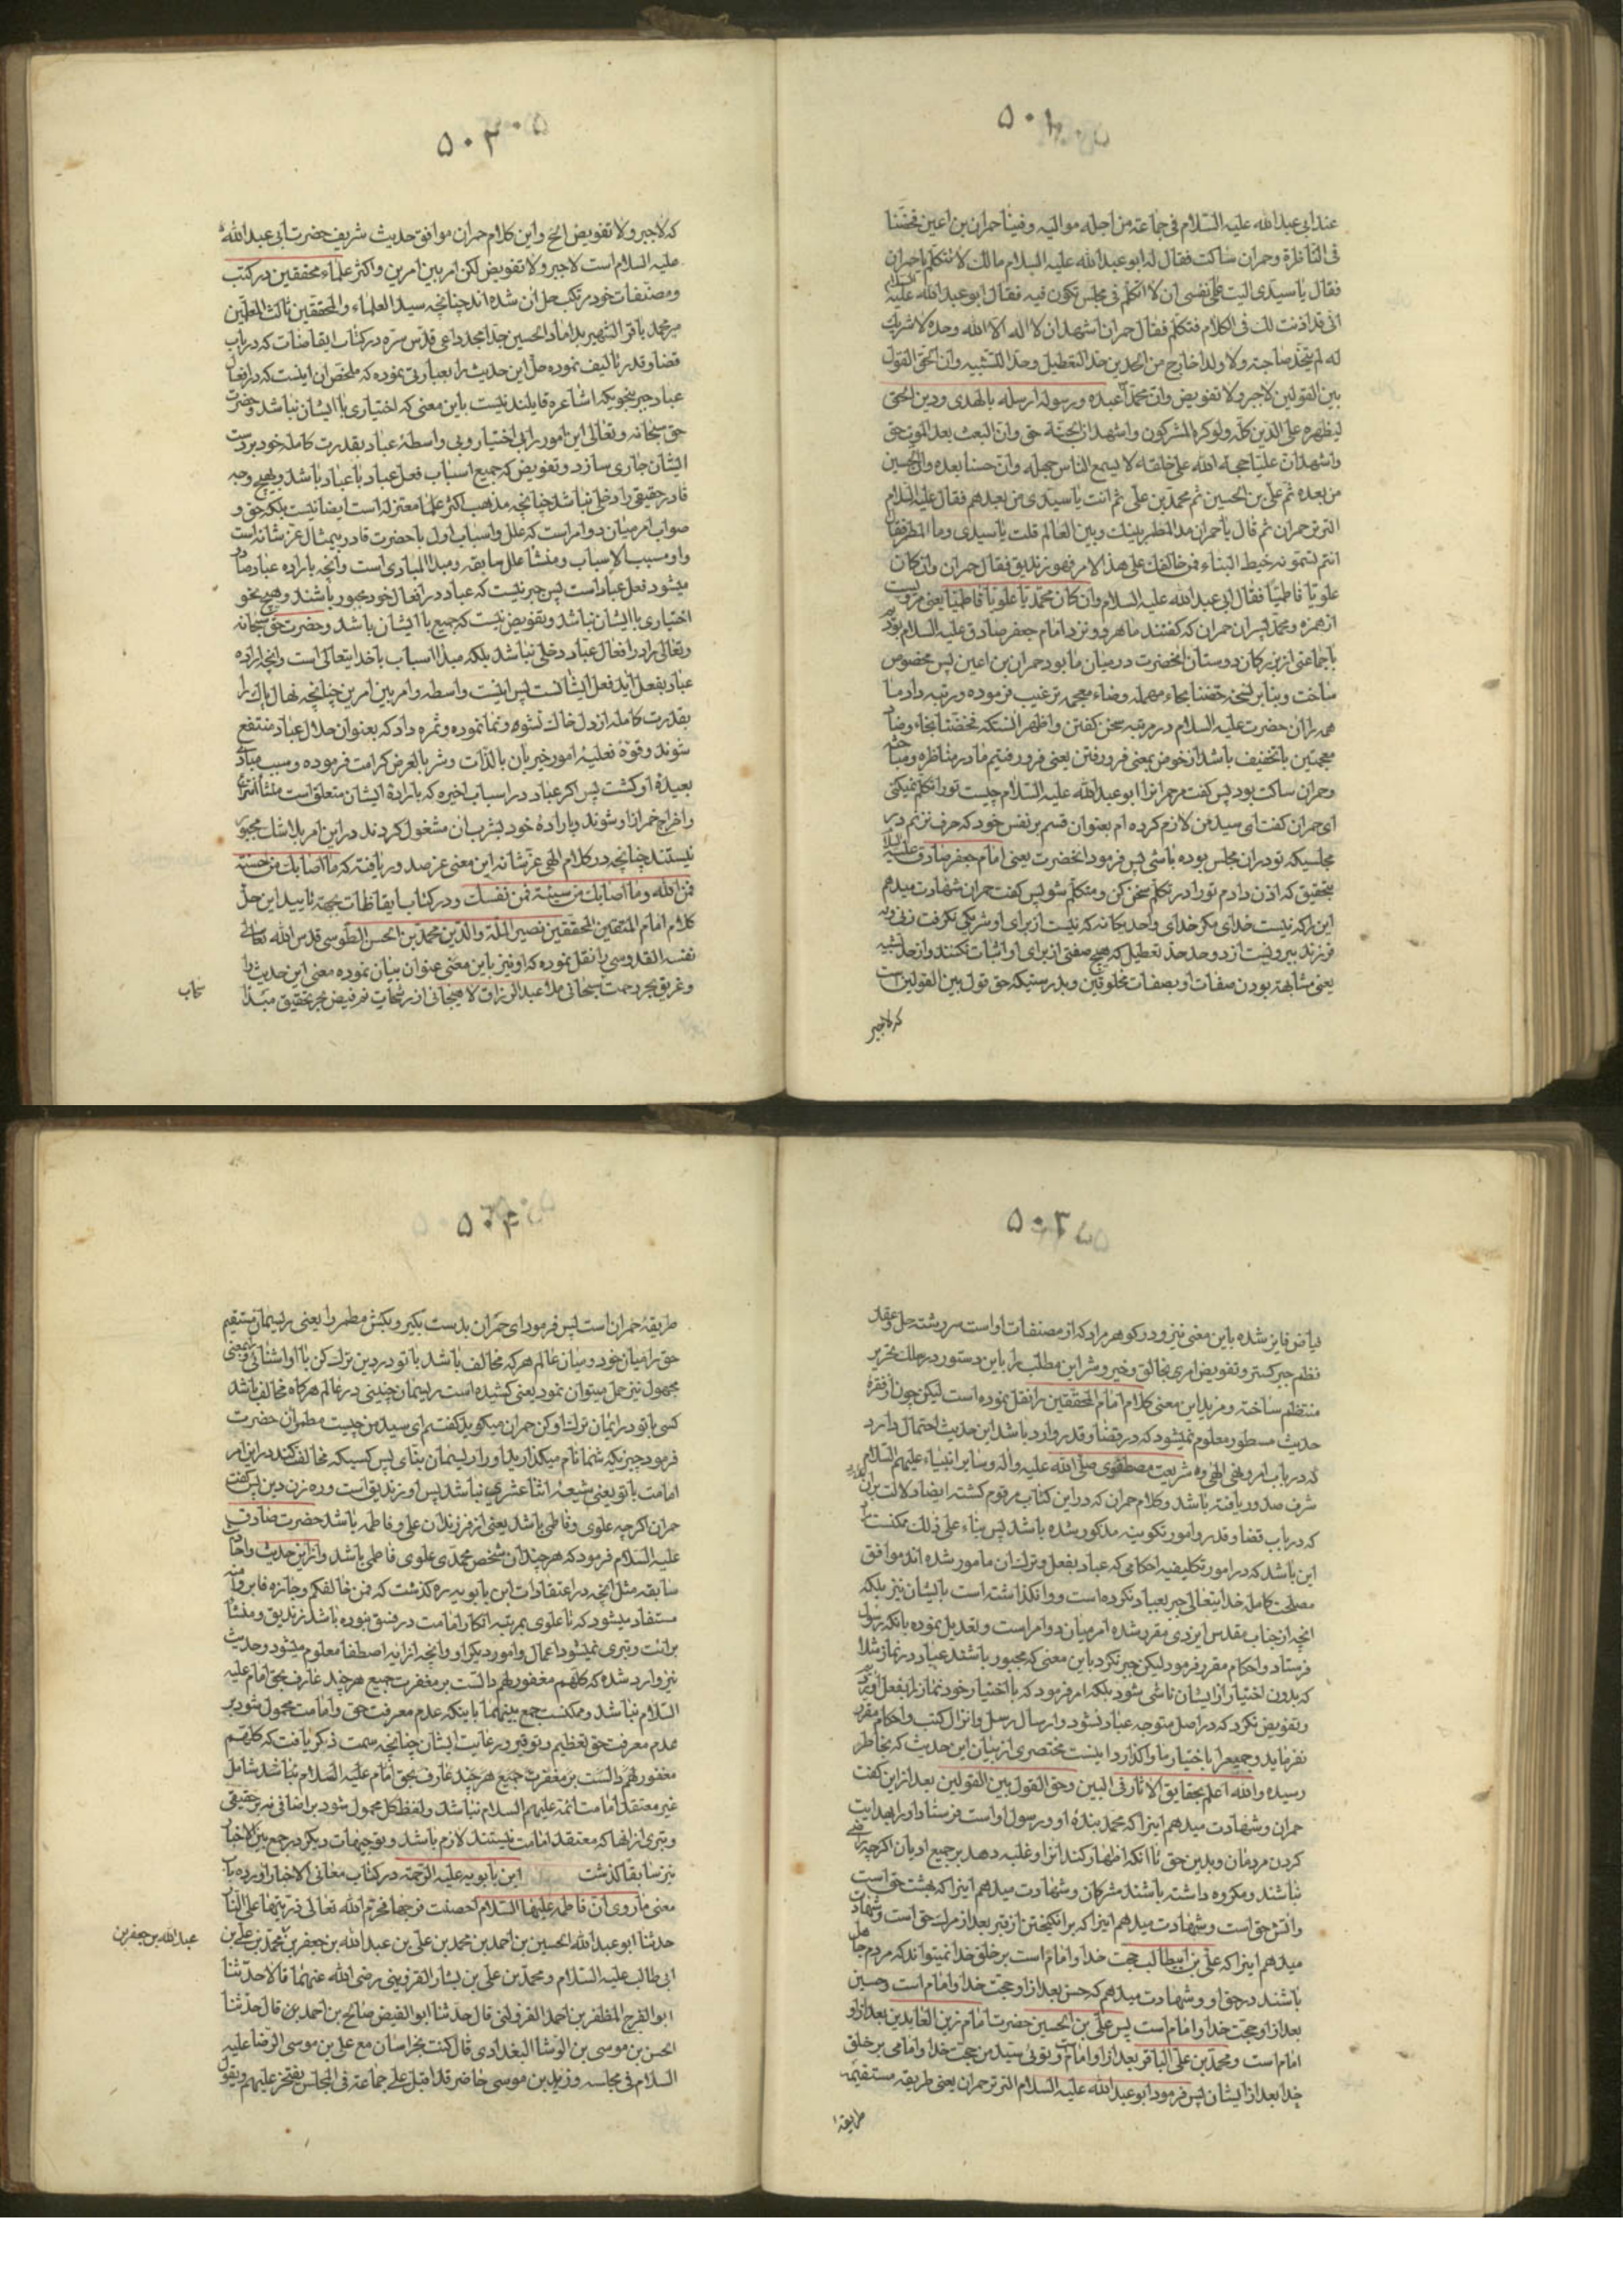 ۵۰۱
عند ابی عبد الله علیه السلام فی جماعة من اجله موالیه وفینا حمران بن اعین فخضنا
فی المناظرة وحمران ساکت فقال له ابو عبد الله علیه السلام مالک لا تتکلم یا حمران
فقال یا سیدی الیت علی نفسی ان لا اتکلم فی مجلس تکون فیه فقال ابو عبد الله علیه السلام
انی قد اذنت لک فی الکلام فتکلم فقال حمران اشهد ان لا اله الا الله وحده لا شریک
له لم یتخذ صاحبة ولا ولدا خارج من الحدین حد التعطیل وحد التشبیه وان الحق القول
بین القولین لا جبر ولا تفویض وان محمدا عبده ورسوله ارسله بالهدی ودین الحق
لیظهره علی الدین کله ولو کره المشرکون واشهد ان الجنة حق وان البعث بعد الموت حق
واشهد ان علیا حجة الله علی خلقه لا یسع الناس جهله وان حسنا بعده وان الحسین
من بعده ثم علی بن الحسین ثم محمد بن علی ثم انت یا سیدی من بعدهم فقال علیه السلام
التر تر حمران ثم قال یا حمران مد المطمر بینک وبین العالم قلت یا سیدی وما المطمر فقال
انتم تسمونه خیط البناء فمن خالفک علی هذا الامر فهو زندیق فقال حمران وان کان
علویا فاطمیا فقال ابی عبد الله علیه السلام وان کان محمدیا علویا فاطمیا یعنی مرویست
از حمزه و محمد پسران حمران که گفتند ما هر دو نزد امام جعفر صادق علیه السلام بودیم
با جماعتی از بزرکان دوستان انحضرت و در میان ما بود حمران بن اعین پس مخصوص
ساخت و بنابر نسخه حضنا بحاء مهمله وضاء معجمه ترغیب فرموده و رتبه داد ما
همه را ان حضرت علیه السلام در مرتبه سخن کفتن و اظهر انستکه فخضنا بخاء وضاد
معجمتین با تخفیف باشد از خوض بمعنی فرو رفتن یعنی فرو رفتیم ما در مناظره و مباحثه
وحمران ساکت بود پس کفت مر حمران را ابو عبد الله علیه السلام چیست تو را تکلم نمیکنی
ای حمران کفت ای سید من لازم کرده ام بعنوان قسم بر نفس خود که حرف نزنم در
مجلسیکه تو دران مجلس بوده باشی پس فرمود انحضرت یعنی امام جعفر صادق علیه السلام
بتحقیق که اذن دادم تو را در تکلم سخن کن و متکلم شو پس کفت حمران شهادت میدهم
این را که نیست خدای مکر خدای واحد یکانه که نیست از برای او شریکی نکرفت زنی و نه
فرزند بیرونست از دو حد حد تعطیل که هیچ صفتی از برای او اثبات نکنند و از حد تشبیه
یعنی مشابهة بودن صفات او بصفات مخلوقین و بدرستیکه حق قول بین القولین است
که لا جبر
۵۰۲
که لا جبر ولا تفویض الخ و این کلام حمران موافق حدیث شریف حضرت ابی عبد الله
علیه السلام است لا جبر ولا تفویض لکن امر بین امرین و اکثر علماء محققین در کتب
و مصنفات خود مرتکب حل ان شده اند چنانچه سید العلماء والمحققین ثالث المعلمین
میر محمد باقر الشهیر بداماد الحسینی جد امجد داعی قدس سره در کتاب ایقاضات که در باب
قضا و قدر تالیف نموده حل این حدیث را بعبارتی نموده که ملخص ان اینست که در افعال
عباد جبر بنحویکه اشاعره قایلند نیست باین معنی که اختیاری با ایشان نباشد و حضرت
حق سبحانه وتعالی این امور را بی اختیار و بی واسطه عباد بقدرت کامله خود بر دست
ایشان جاری سازد و تفویض که جمیع اسباب فعل عباد با عباد باشد و بهیچ وجه
قادر حقیقی را دخلی نباشد چنانچه مذهب اکثر علما معتزله است ایضا نیست بلکه حق و
صواب امر میان دو امر است که علل و اسباب اول با حضرت قادر بیمثال عز شانه است
و او مسبب الاسباب و منشا علل سابقه و مبدا المبادی است و انچه باراده عباد صادر
میشود فعل عباد است پس جبر نیست که عباد در افعال خود مجبور باشند و هیچ نحو
اختیاری با ایشان نباشد و تفویض نیست که جمیع با ایشان باشد و حضرت حق سبحانه
وتعالی را در افعال عباد دخلی نباشد بلکه مبدا اسباب با خدایتعالی است و انچه اراده
عباد بفعل اید فعل ایشانست پس اینست واسطه و امر بین امرین چنانچه نهال پاک را
بقدرت کامله از دل خاک نشوه و نما نموده و ثمره داد که بعنوان حلال عباد منتفع
شوند و قوه فعلیه امور خیر بان بالذات و شر بالعرض کرامت فرموده و سبب مبادی
بعیده او کشت پس اکر عباد در اسباب اخیره که باراده ایشان متعلق است منشا انتزاع
و اخراج خمر از او شوند و باراده خود بشرب ان مشغول کردند در این امر بلا شک مجبور
نیستند چنانچه در کلام الهی عز شانه این معنی عز صدور یافته که ما اصابک من حسنة
فمن الله وما اصابک من سیئة فمن نفسک و در کتاب ایقاظات بجهة تایید این حل
کلام امام المتقین المحققین نصیر الملة والدین محمد بن الحسن الطوسی قدس الله تعالی
نفسه القدوسی را نقل نموده که او نیز باین معنی عنوان بیان نموده معنی این حدیث را
و غریق بحر رحمت سبحانی ملا عبد الرزاق لاهیجانی از رشحات فرفیض بحر تحقیق مبدا
سحاب
۵۰۳
فیاض فایز شده باین معنی نیز و در کوهر مراد که از مصنفات او است سررشته حل و عقد
نظم جبر کستر و تفویض امری بخالق و خیر و شر این مطلب را باین دستور در سلک تحریر
منتظم ساخته و مزید این معنی کلام امام المحققین را نقل نموده است لیکن چون از فقره
حدیث مسطور معلوم نمیشود که در قضا و قدر وارد باشد این حدیث احتمال دارد
که در باب امر و نهی الهی و شریعت مصطفوی صلی الله علیه واله و سایر انبیاء علیهم السلام
شرف صدور یافته باشد و کلام حمران که در این کتاب مرقوم کشته ایضا دلالت بران ندارد
که در باب قضا و قدر و امور تکوینیه مذکور شده باشد پس بناء علی ذلک ممکنست
این باشد که در امور تکلیفیه احکامی که عباد بفعل و ترک ان مامور شده اند موافق
مصلحت کامله خدایتعالی جبر بعباد نکرده است و وانکذاشته است بایشان نیز بلکه
انچه از جناب مقدس ایزدی مقرر شده امر میان دو امر است و تعدیل نموده بانکه رسول
فرستاد و احکام مقرر فرمود لیکن جبر نکرد باین معنی که مجبور باشند عباد در نماز مثلا
که بدون اختیار از ایشان ناشی شود بلکه امر فرمود که با اختیار خود نماز را بفعل اورند
و تفویض نکرد که در اصل متوجه عباد نشود و ارسال رسل و انزال کتب و احکام مقرر
نفرماید و جمیع را باختیار ما واکذارد اینست مختصری از بیان این حدیث که بخاطر
رسیده والله اعلم بحقایق الاثار فی البین و حق القول بین القولین بعد از این کفت
حمران و شهادت میدهم اینرا که محمد بنده او و رسول او است فرستاد او را بهدایت
کردن مردمان و بدین حق تا انکه اظهار کند انرا و غلبه دهد بر جمیع ادیان اکرچه راضی
نباشند و مکروه داشته باشند مشرکان و شهادت میدهم اینرا که بهشت حق است
و اتش حق است و شهادت میدهم اینرا که برانکیختن از قبر بعد از مرک حق است و شهادت
میدهم اینرا که علی بن ابیطالب حجت خدا و امام است بر خلق خدا نمیتواند که مردم جاهل
باشند در حق او و شهادت میدهم که حسن بعد از او حجت خدا و امام است و حسین
بعد از او حجت خدا و امام است پس علی بن الحسین حضرت امام زین العابدین بعد از او
امام است و محمد بن علی الباقر بعد از او امام است و توئی سید من حجت خدا و امامی بر خلق
خدا بعد از ایشان پس فرمود ابو عبد الله علیه السلام التر تر حمران یعنی طریقه مستقیمه
طریقهٔ
۵۰۴
طریقهٔ حمران است پس فرمود ای حمران بدست بکیر و بکش مطمر را یعنی ریسمان مستقیم
حق را میان خود و میان عالم هر که مخالف باشد با تو در دین ترک کن با او اشنائی و بمعنی
مجهول نیز حمل میتوان نمود یعنی کشیده است ریسمان چنینی در عالم هرکاه مخالف باشد
کسی با تو در ایمان ترک او کن حمران میکوید کفتم ای سید من چیست مطمران حضرت
فرمود چیزیکه شما نام میکذارید او را ریسمان بنای پس کسیکه مخالفت کند در این امر
امامت با تو یعنی شیعه اثنا عشری نباشد پس او زندیق است و ره زن دین پس کفت
حمران اکرچه علوی و فاطمی باشد یعنی از فرزندان علی و فاطمه باشد حضرت صادق
علیه السلام فرمود که هرچند ان شخص محمدی علوی فاطمی باشد و از این حدیث و احادیث
سابقه مثل انچه در اعتقادات ابن بابویه ره کذشت که فمن خالفکم وجازه فابرؤا منه
مستفاد میشود که تا علوی بمرتبه انکار امامت در فسق نبوده باشد زندیق و منشا
برائت و تبری نمیشود اعمال و امور دیکر او و انچه از ایه اصطفا معلوم میشود و حدیث
نیز وارد شده که کلهم مغفور لهم دالست بر مغفرت جمیع هرچند عارف بحق امام علیه
السلام نباشد و ممکنست جمع بینهما باینکه عدم معرفت حق و امامت محمول شود بر
عدم معرفت حق تعظیم و توقیر و رعایت ایشان چنانچه سمت ذکر یافت که کلهم
مغفور لهم دالست بر مغفرت جمیع هرچند عارف بحق امام علیه السلام نباشد شامل
غیر معتقد امامت ائمه علیهم السلام نباشد و لفظ کل محمول شود بر اضافی نه بر حقیقی
و تبری از انها که معتقد امامت نیستند لازم باشد و توجیهات دیکر در جمع بین الاخبار
نیز سابقا کذشت ابن بابویه علیه الرحمه در کتاب معانی الاخبار اورده باب
معنی ما روی ان فاطمه علیها السلام احصنت فرجها فحرم الله تعالی ذریتها علی النار
حدثنا ابو عبد الله الحسین بن احمد بن محمد بن علی بن عبد الله بن جعفر بن محمد بن علی بن
عبد الله بن جعفر بن
ابی طالب علیه السلام و محمد بن علی بن بشار القزوینی رضی الله عنهما قالا حدثنا
ابو الفرج المظفر بن احمد القزوینی قال حدثنا ابو الفیض صالح بن احمد بن قال حدثنا
الحسن بن موسی بن الوشا البغدادی قال کنت بخراسان مع علی بن موسی الرضا علیه
السلام فی مجلسه وزید بن موسی حاضر قد اقبل علی جماعة فی المجلس یفتخر علیهم ویقول